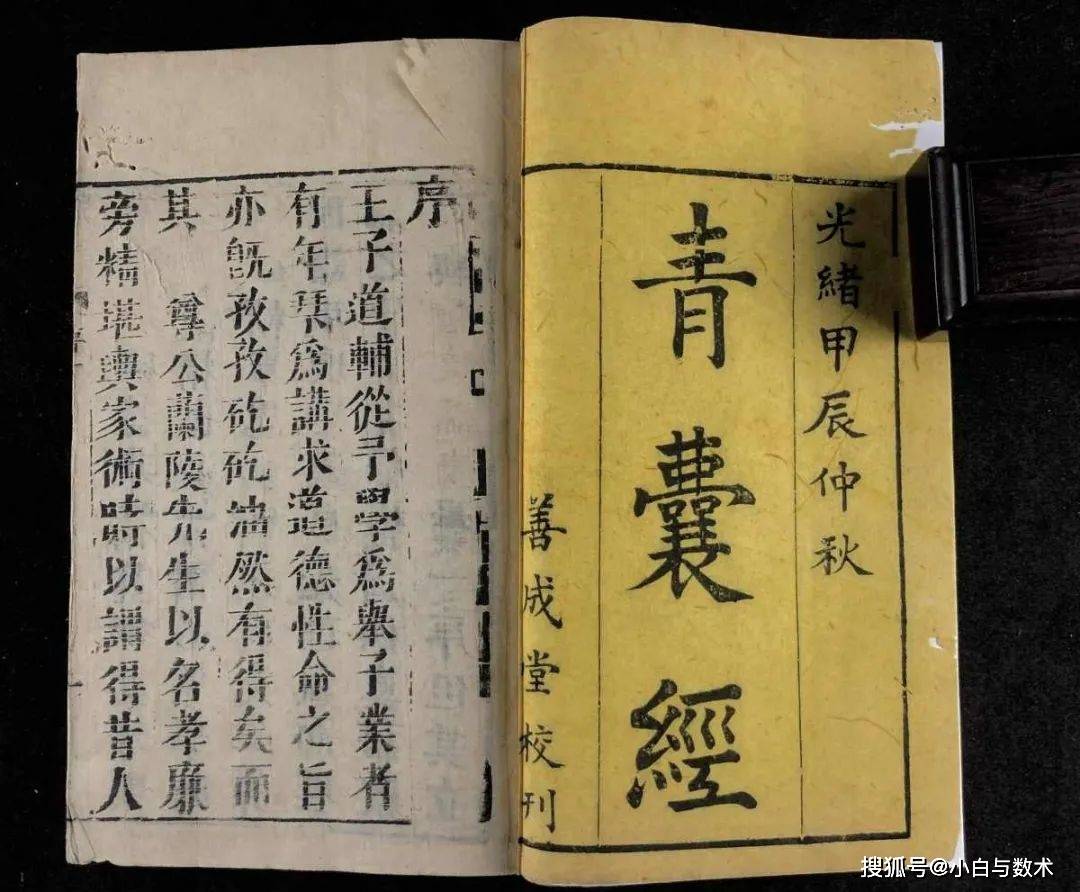 光緒甲辰仲秋
青囊經
善成堂校刊
序
王子道輔從予學爲舉子業者
有年栞爲講求道德性命之旨
亦旣孜孜矻矻油然有得矣而
其 尊公蘭陵先生以名孝廉
旁精堪輿家術時以謂得昔人
搜狐号@小白与数术